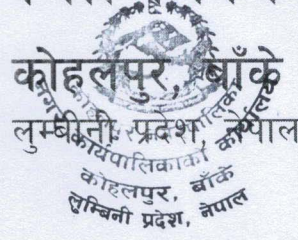 कोहलपुर, बाँके
लुम्बीनी प्रदेश, नेपाल
कोहलपुर नगरपालिका
नगर कार्यपालिकाको कार्यालय
कोहलपुर, बाँके
लुम्बिनी प्रदेश, नेपाल